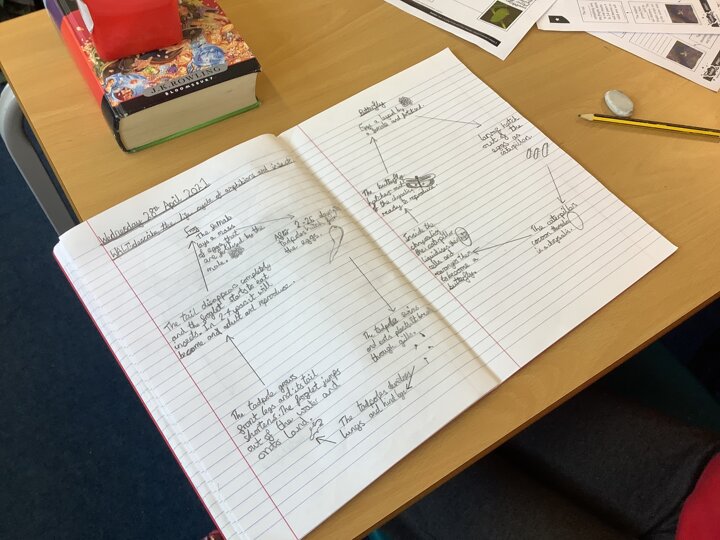 J.K. ROWLING
BLOOMSBURY
Wednesday 28th April 2021
describe the life cycle of amphibians and insects.
Frog
The female
lays a mass
of eggs
are fertilised by the
male.
After 2-25 days
tadpoles hatch from
the eggs.
The tadpole swims
and eats plants
through gills.
The tadpole develops
lungs and hind legs
The tadpole grows
front legs and its tail
shortens. The froglet jumps
out of the water and
onto land.
The tail disappears completely
and the froglet starts to eat
insects. In 2-4 years it will
become and adult and reproduce.
Butterfly
Egg is layed by
a female and
larvae hatch
out of the
eggs as
caterpillar.
The caterpillar
cocoons
in a chrysalis.
Inside the
chrysalis
the caterpillar
liquidises
cells and
rearranges them
to become a
butterfly.
The butterfly
of the chrysalis
ready to reproduce.